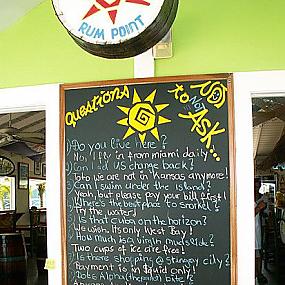 RUM POINT
Questions
to NOT
ASK...
1) Do you live here?
No, I fly in from miami daily
2) Can I get US change back?
Toto we are not in Kansas anymore!
Can I swim under the island?
Yeah, but please pay your bill first!
Where's the best place to snorkel?
Try the water!
Is that cuba on the horizon?
We wish. Its only West Bay!
How much is a virgin mudslide?
Two cups of ice are free!
Is there shopping @ stingray city?
Payment is in Squid only!